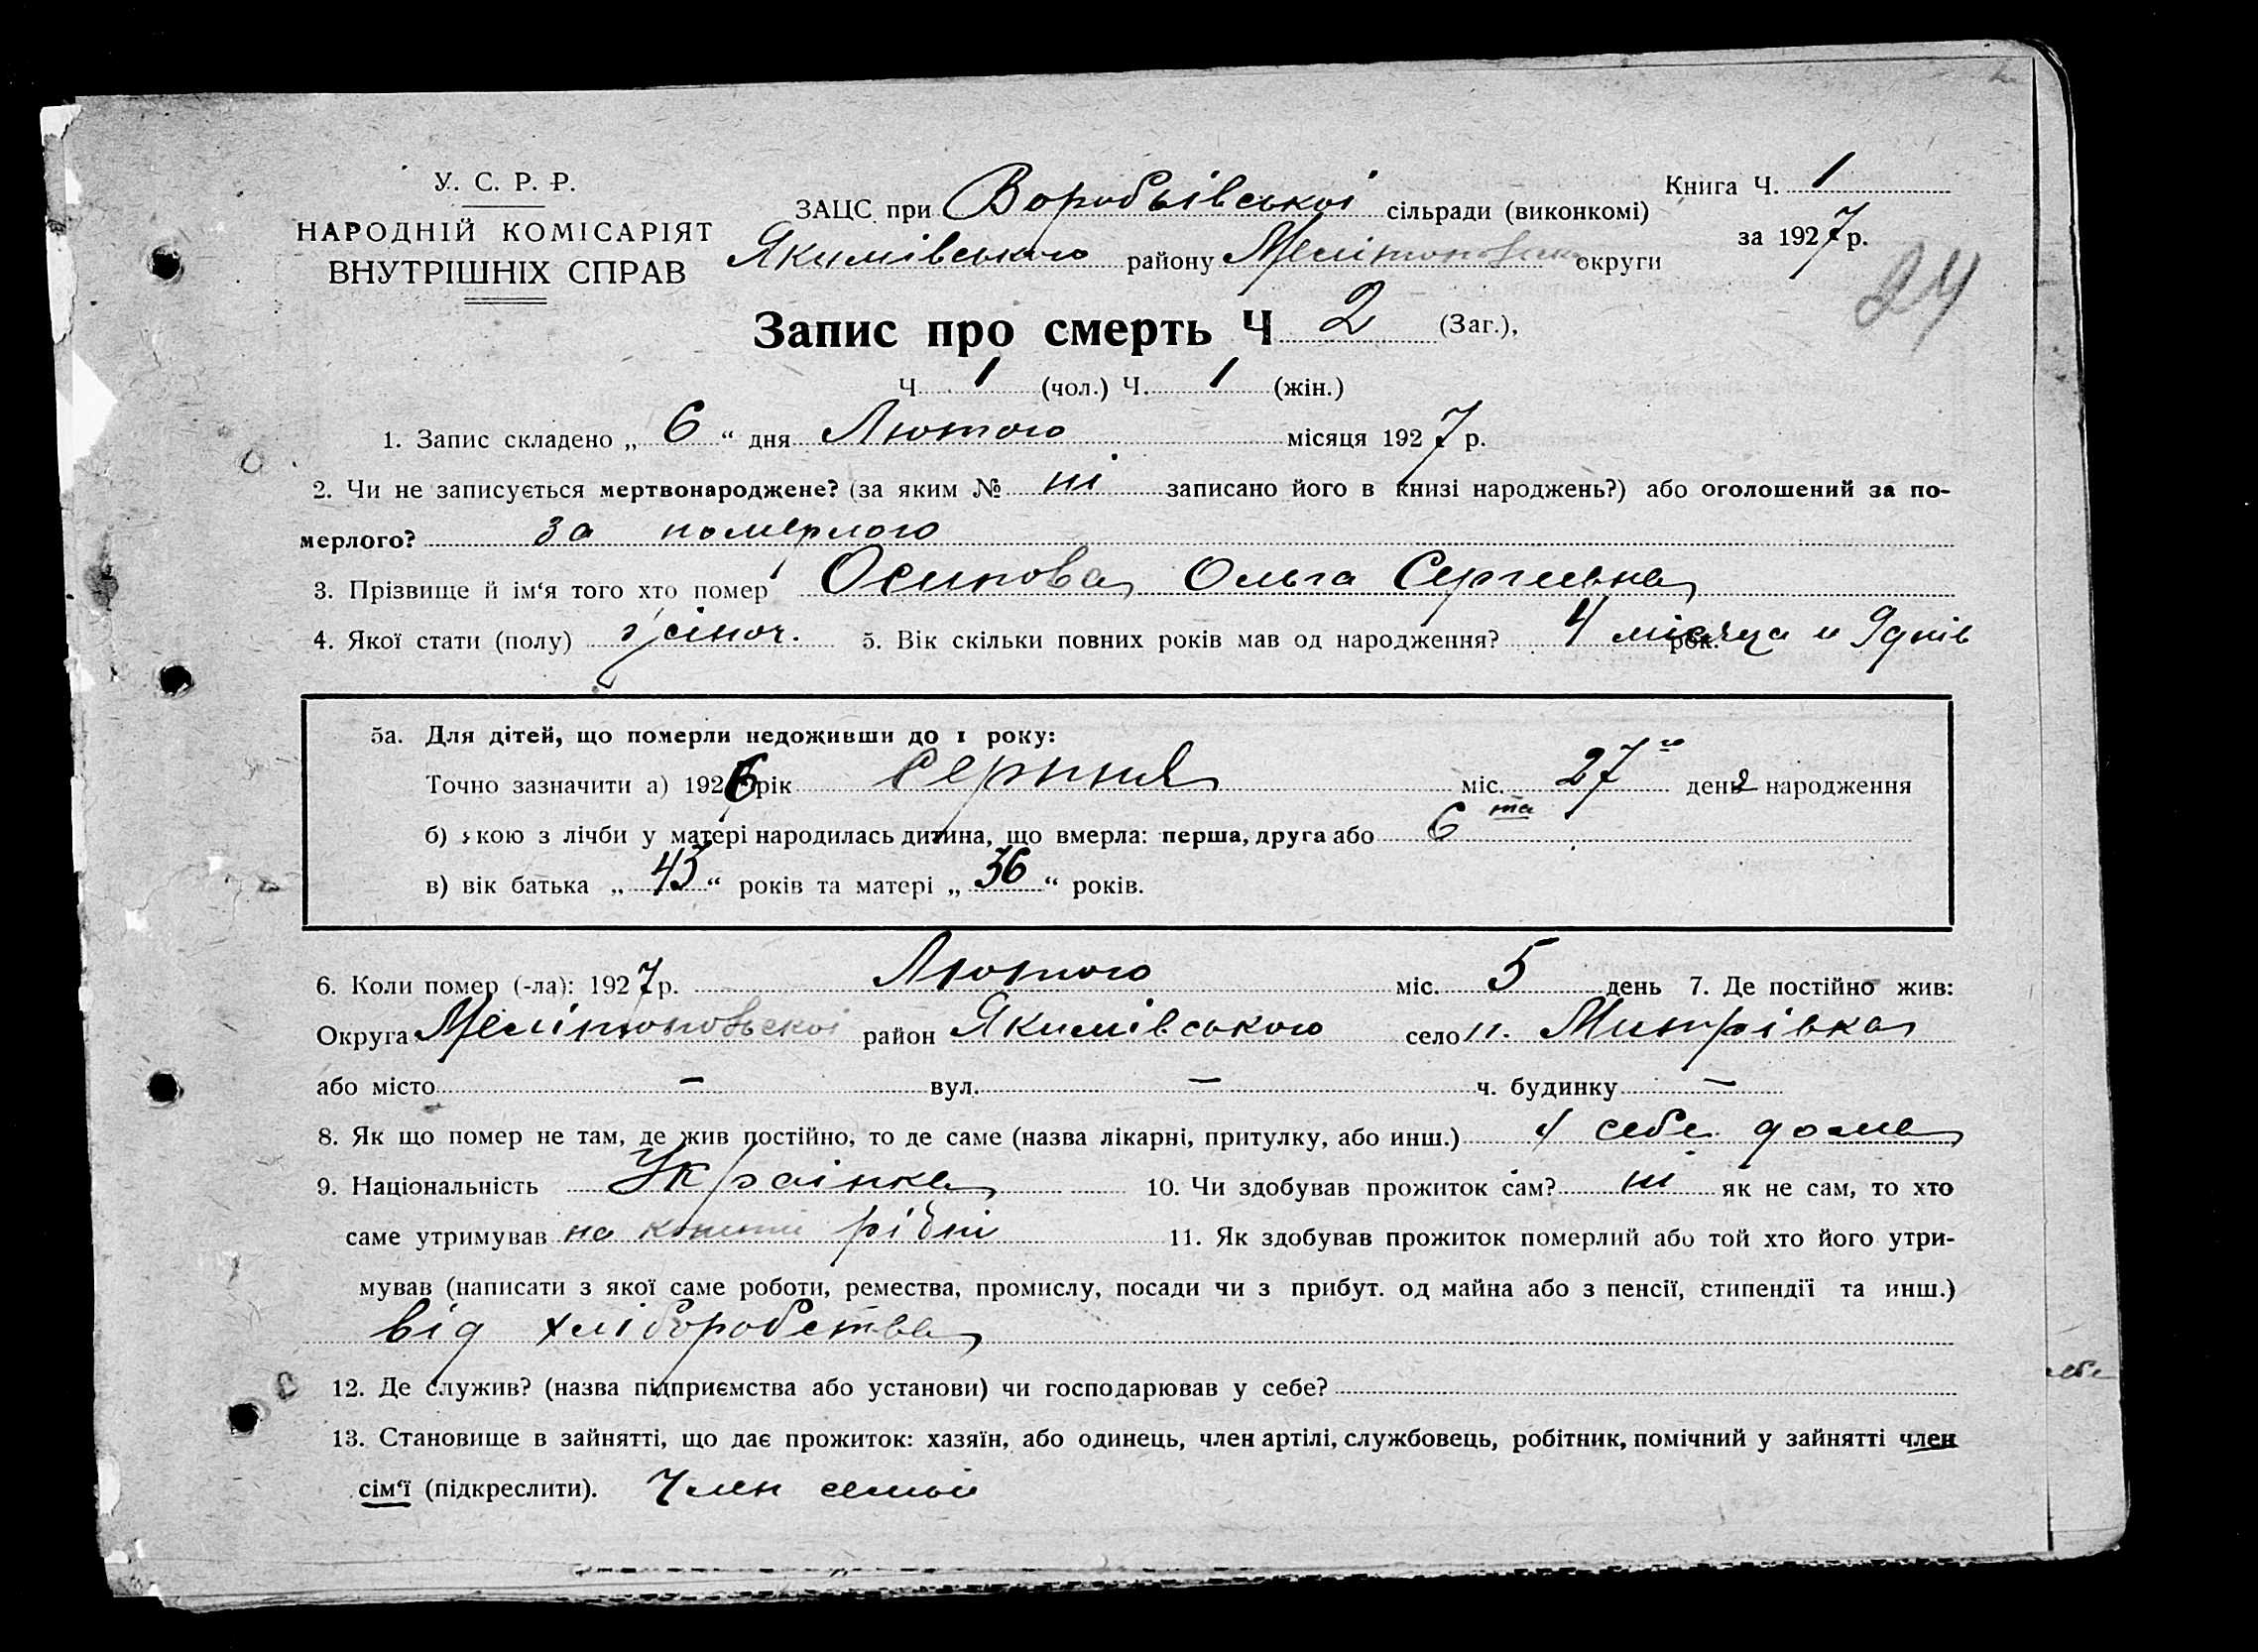 У. С. Р. Р.
НАРОДНІЙ КОМІСАРІЯТ
ВНУТРІШНІХ СПРАВ
ЗАЦС при Воробьівської сільради (виконкомі)
Якимівського району Мелітопольської округи
Книга Ч. 1
за 1927 р.
24
Запис про смерть Ч 2 (Заг.),
Ч 1 (чол.) Ч. 1 (жін.)
1. Запис складено „ 6 “ дня Лютого місяця 1927 р.
2. Чи не записується мертвонароджене? (за яким № ні записано його в книзі народжень?) або оголошений за по-
мерлого? за померлого
3. Прізвище й ім‘я того хто помер Осипова Ольга Сергиевна
4. Якої стати (полу) жіноч. 5. Вік скільки повних років мав од народження? 4 місяца и 9 днів рок.
5а. Для дітей, що померли недоживши до 1 року:
Точно зазначити а) 1926 рік Серпня міс. 27го дення народження
б) якою з лічби у матері народилась дитина, що вмерла: перша, друга або 6та
в) вік батька „ 43 “ років та матері „ 36 “ років.
6. Коли помер (-ла): 1927 р. Лютого міс. 5 день 7. Де постійно жив:
Округа Мелітопольскої район Якимівського село п. Митрівка
або місто – вул. – ч. будинку –
8. Як що помер не там, де жив постійно, то де саме (назва лікарні, притулку, або инш.) у себе дома
9. Національність Українка 10. Чи здобував прожиток сам? ні як не сам, то хто
саме утримував на кошти рідні 11. Як здобував прожиток померлий або той хто його утри-
мував (написати з якої саме роботи, ремества, промислу, посади чи з прибут. од майна або з пенсії, стипендії та инш.)
від хліборобства
12. Де служив? (назва підприємства або установи) чи господарював у себе?
13. Становище в зайнятті, що дає прожиток: хазяїн, або одинець, член артілі, службовець, робітник, помічний у зайнятті член
сім‘ї (підкреслити). Член семьи